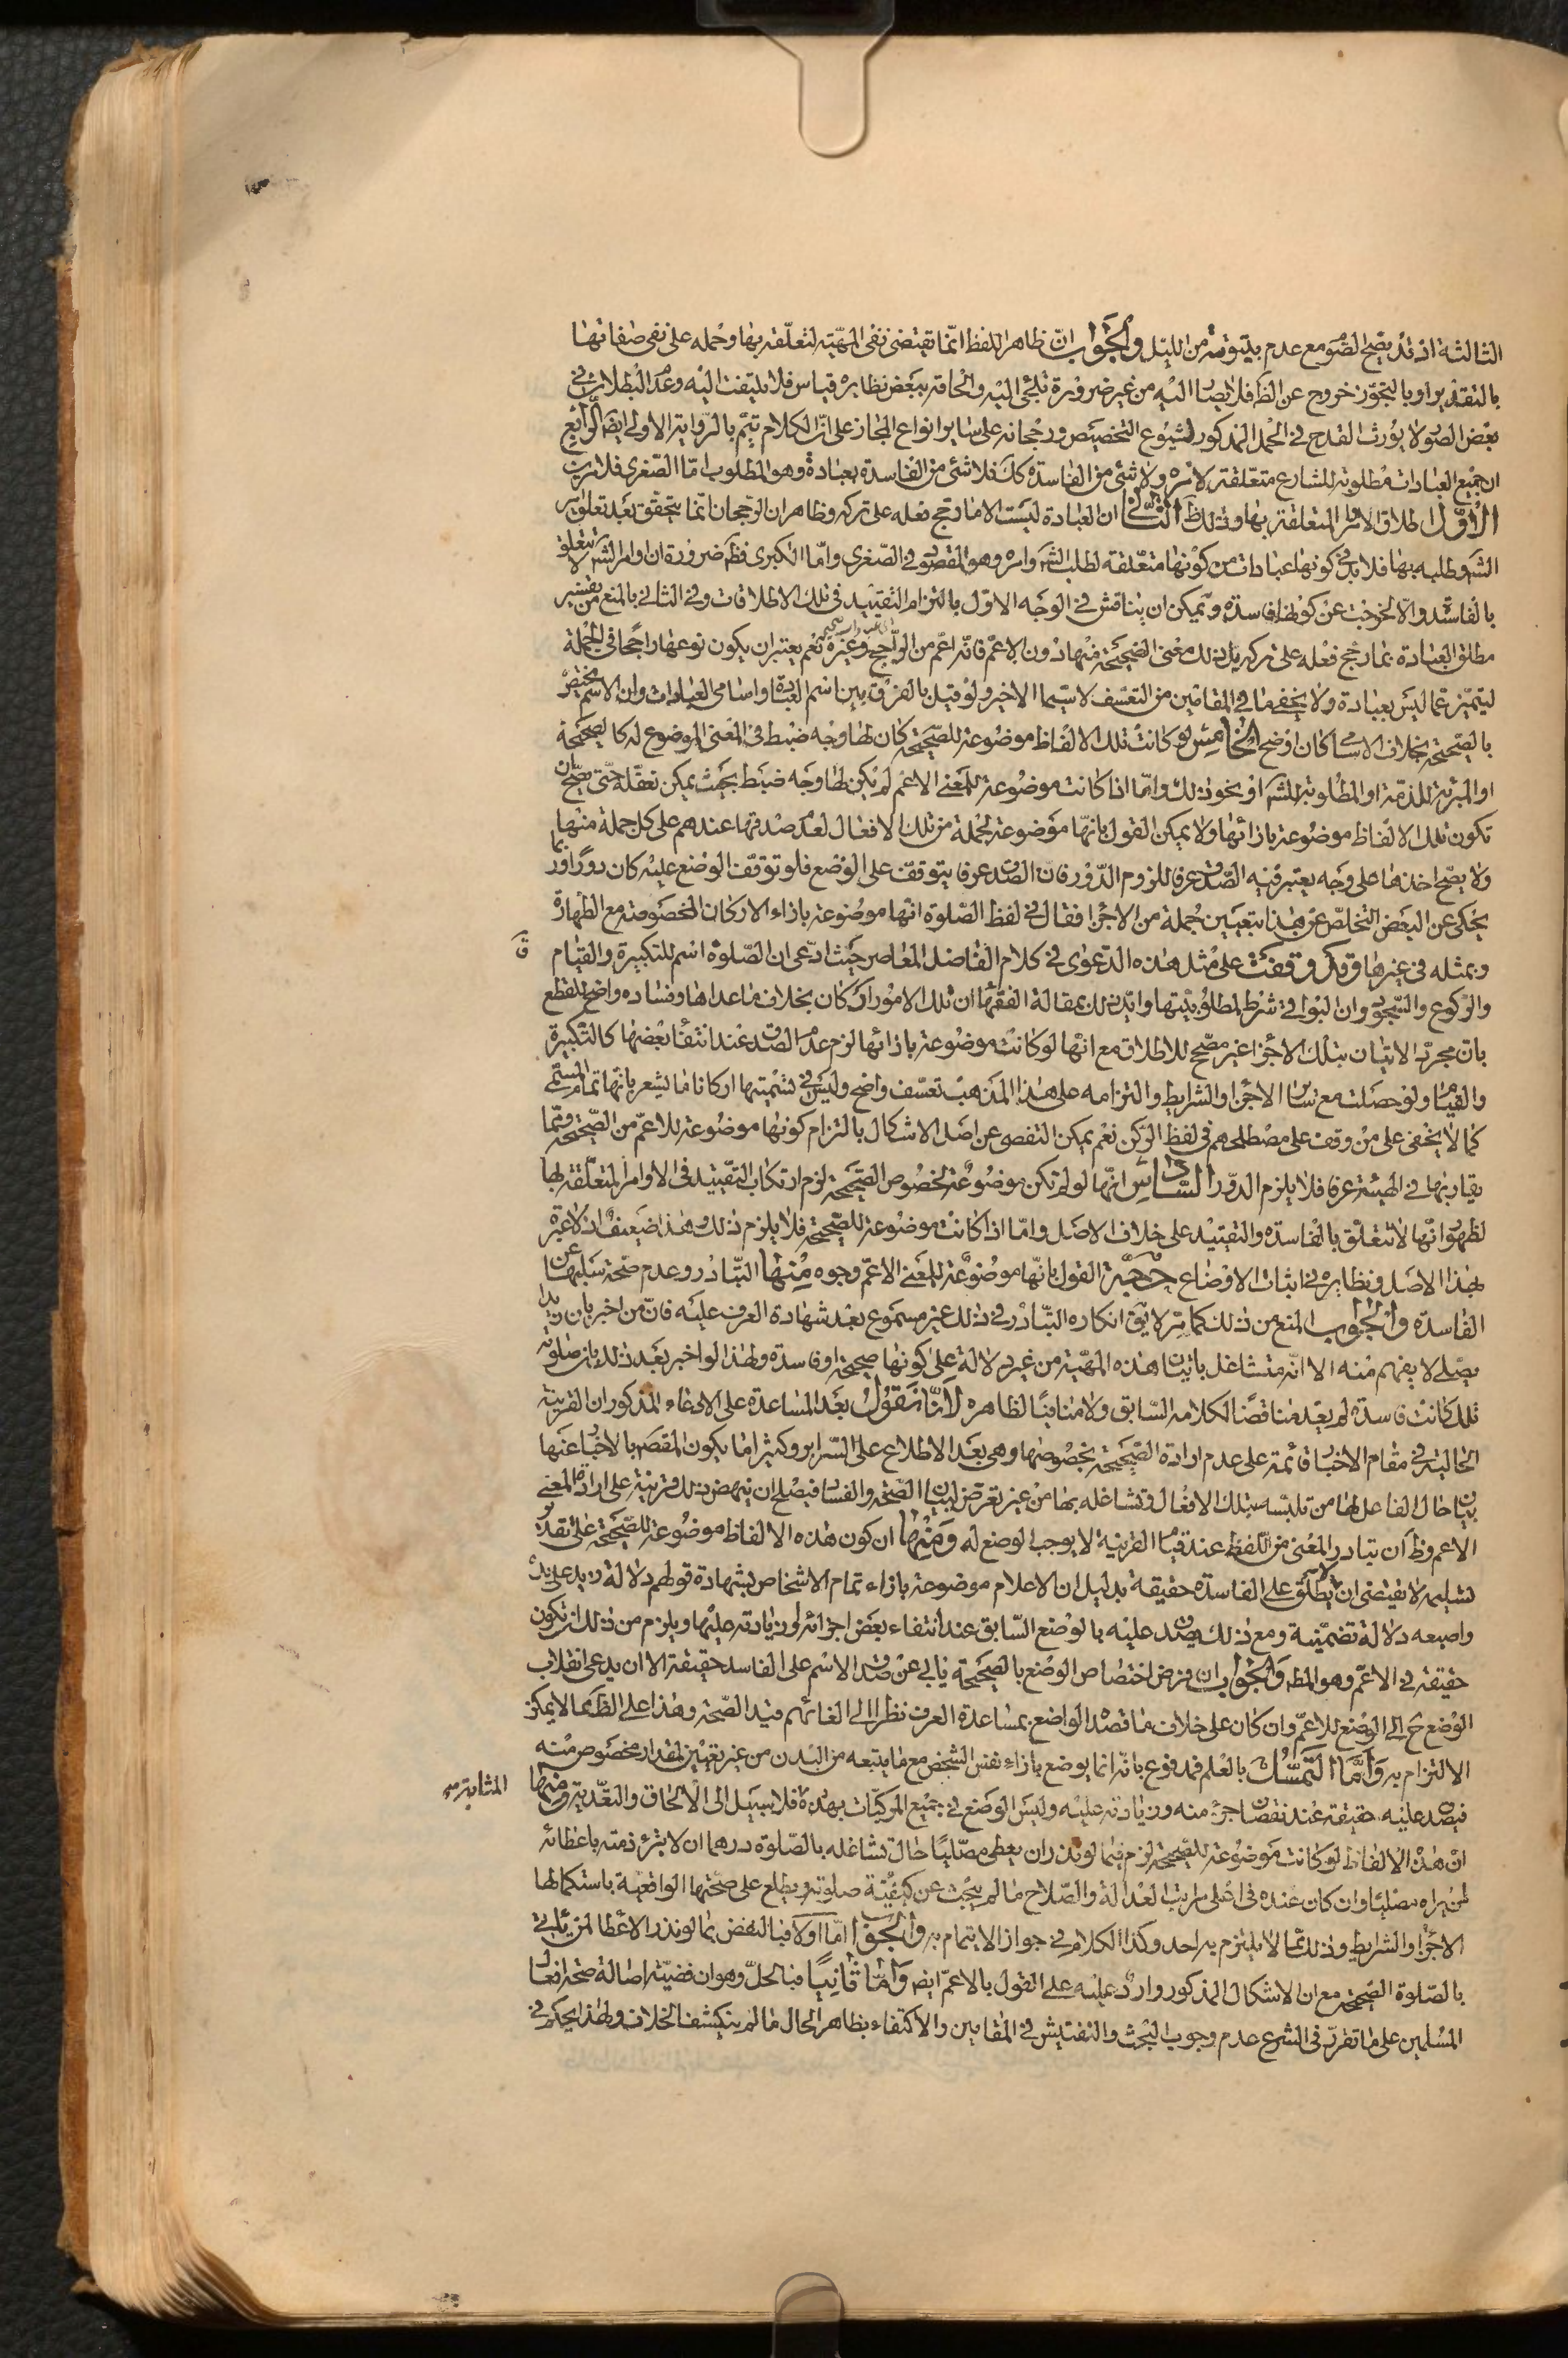 الثالثة اذ قد يصح الصوم مع عدم بيتوتته من الليل والجواب ان ظاهر اللفظ انما يقتضى نفى المهية لتعلقه بها وحمله على نفى صفاتها
بالتقدير او بالتجوز خروج عن الظ فلا يصار اليه من غير ضرورة تلجئ اليه والحاقه ببعض نظايره قياس فلا يلتفت اليه وعدم البطلان فى
بعض الصور لا يورث القدح فى الحمل المذكور لشيوع التخصيص ورجحانه على ساير انواع المجاز على ان الكلام يتم بالرواية الاولى ايضا الرابع
ان جميع العبادات مطلوبة للشارع متعلقة لامره ولا شئ من الفاسدة كك فلا شئ من الفاسدة بعبادة وهو المطلوب اما الصغرى فلامرين
الاول اطلاق الاوامر المتعلقة بها وذلك ظ الثانى ان العبادة ليست الا ما رجح فعله على تركه وظاهر ان الرجحان انما يتحقق بعد تعلق امر
الشر وطلبه بها فلا بد فى كونها عبادات من كونها متعلقة لطلب الشر وامره وهو المقصود فى الصغرى واما الكبرى فظ ضرورة ان اوامر الشر لا تتعلق
بالفاسد والا لخرجت عن كونها فاسدة ويمكن ان يناقش فى الوجه الاول بالتزام التقييد فى تلك الاطلاقات وفى الثانى بالمنع من تفسير
مطلق العبادة بما رجح فعله على تركه بل ذلك معنى الصحيحة منها دون الاعم فانه اعم من الراجح وغيره نعم يعتبر ان يكون نوعها راجحا فى الجملة
ليتميز عما ليس بعبادة ولا يخفى ما فى المقامين من التعسف لا سيما الاخير ولو قيل بالفرق بين اسم العبادة واسامى العبادات وان الاسم يختص
بالصحيحة بخلاف الاسامى كان اوضح الخامس لو كانت تلك الالفاظ موضوعة للصحيحة كان لها وجه ضبط فى المعنى الموضوع له كالصحيحة
او المبرئة للذمة او المطلوبة للشر او نحو ذلك واما اذا كانت موضوعة للمعنى الاعم لم يكن لها وجه ضبط بحيث يمكن تعقله حتى يصح ان
تكون تلك الالفاظ موضوعة بازائها ولا يمكن القول بانها موضوعة لجملة من تلك الافعال لعدم صدقها عندهم على كل جملة منها
ولا يصح اخذها على وجه يعتبر فيه الصدق عرفا للزوم الدور فان الصدق عرفا يتوقف على الوضع فلو توقف الوضع عليه كان دورا وربما
يحكى عن البعض التخلص عن هذا بتعيين جملة من الاجزاء فقال فى لفظ الصلوة انها موضوعة بازاء الاركان المخصوصة مع الطهارة
وبمثله فى غيرها وقد وقفت على مثل هذه الدعوى فى كلام الفاضل المعاصر حيث ادعى ان الصلوة اسم للتكبيرة والقيام
والركوع والسجود وان البواقى شرط لمطلوبيتها وايد ذلك بمقالة الفقهاء ان تلك الامور اركان بخلاف ما عداها وفساده واضح للقطع
بان مجرد الاتيان بتلك الاجزاء غير مصحح للاطلاق مع انها لو كانت موضوعة بازائها لزم عدم الصدق عند انتفاء بعضها كالتكبيرة
والقيام ولو حصلت مع ساير الاجزاء والشرايط والتزامه على هذا المذهب تعسف واضح وليس فى تسميتها اركانا ما يشعر بانها تمام المسمى
كما لا يخفى على من وقف على مصطلحهم فى لفظ الركن نعم يمكن التفصى عن اصل الاشكال بالتزام كونها موضوعة للاعم من الصحيحة ومما
يقاربها فى الهيئة عرفا فلا يلزم الدور السادس انها لو لم تكن موضوعة لخصوص الصحيحة لزم ارتكاب التقييد فى الاوامر المتعلقة بها
لظهور انها لا تتعلق بالفاسدة والتقييد على خلاف الاصل واما اذا كانت موضوعة للصحيحة فلا يلزم ذلك وهذا ضعيف اذ لا عبرة
بهذا الاصل ونظايره فى اثبات الاوضاع حجة القول بانها موضوعة للمعنى الاعم وجوه منها التبادر وعدم صحة سلبها عن
الفاسدة والجواب المنع من ذلك كما مر لا يق انكاره التبادر فى ذلك غير مسموع بعد شهادة العرف عليه فان من اخبر بان زيدا
يصلى لا يفهم منه الا انه متشاغل باتيان هذه المهية من غير دلالة على كونها صحيحة او فاسدة ولهذا لو اخبر بعد ذلك بان صلوته
تلك كانت فاسدة لم يعد مناقضا لكلامه السابق ولا منافيا لظاهره لانا نقول بعد المساعدة على الادعاء المذكور ان القرينة
الحالية فى مقام الاخبار قائمة على عدم ارادة الصحيحة بخصوصها وهى بعد الاطلاع على السراير وكثيرا ما يكون المقصد بالاخبار عنها
بيان حال الفاعل لها من تلبسه بتلك الافعال وتشاغله بها من غير تعرض لبيان الصحة والفساد فيصلح ان ينهض ذلك قرينة على ارادة المعنى
الاعم وظ ان تبادر المعنى من اللفظ عند قيام القرينة لا يوجب الوضع له ومنها ان كون هذه الالفاظ موضوعة للصحيحة على تقدير
تسليمه لا يقتضى ان لا يطلق على الفاسدة حقيقة بدليل ان الاعلام موضوعة بازاء تمام الاشخاص بشهادة قولهم دلالة زيد على يده
واصبعه دلالة تضمنية ومع ذلك يصدق عليه بالوضع السابق عند انتفاء بعض اجزائه او زيادته عليها ويلزم من ذلك ان تكون
حقيقة فى الاعم وهو المط والجواب ان فرض اختصاص الوضع بالصحيحة يابى عن صدق الاسم على الفاسد حقيقة الا ان يدعى انقلاب
الوضع ح الى الوضع للاعم وان كان على خلاف ما قصد الواضع بمساعدة العرف نظرا الى الغائهم قيد الصحة وهذا على الظ مما لا يمكن
الالتزام به واما التمسك بالعلم فمدفوع بانه انما يوضع بازاء نفس الشخص مع ما يتبعه من البدن من غير تعيين لمقدار مخصوص منه
فيصدق عليه حقيقة عند نقصان جزء منه وزيادته عليه وليس الوضع فى جميع المركبات بهذه المثابة فلا سبيل الى الالحاق والتعدية ومنها
ان هذه الالفاظ لو كانت موضوعة للصحيحة لزم فيما لو نذر ان يعطى مصليا حال تشاغله بالصلوة درهما ان لا يبرئ ذمته باعطائه
لمن يراه مصليا وان كان عنده فى اعلى مراتب العدالة والصلاح ما لم يبحث عن كيفية صلوته ويطلع على صحتها الواقعية باستكمالها
الاجزاء والشرايط وذلك مما لا يلتزم به احد وكذا الكلام فى جواز الايتمام به والجواب اما اولا فبالنقض بما لو نذر الاعطاء لمن ياتى
بالصلوة الصحيحة مع ان الاشكال المذكور وارد عليه على القول بالاعم ايضا واما ثانيا فبالحل وهو ان قضية اصالة صحة افعال
المسلمين على ما تقرر فى الشرع عدم وجوب البحث والتفتيش فى المقامين والاكتفاء بظاهر الحال ما لم ينكشف الخلاف ولهذا يحكم فى